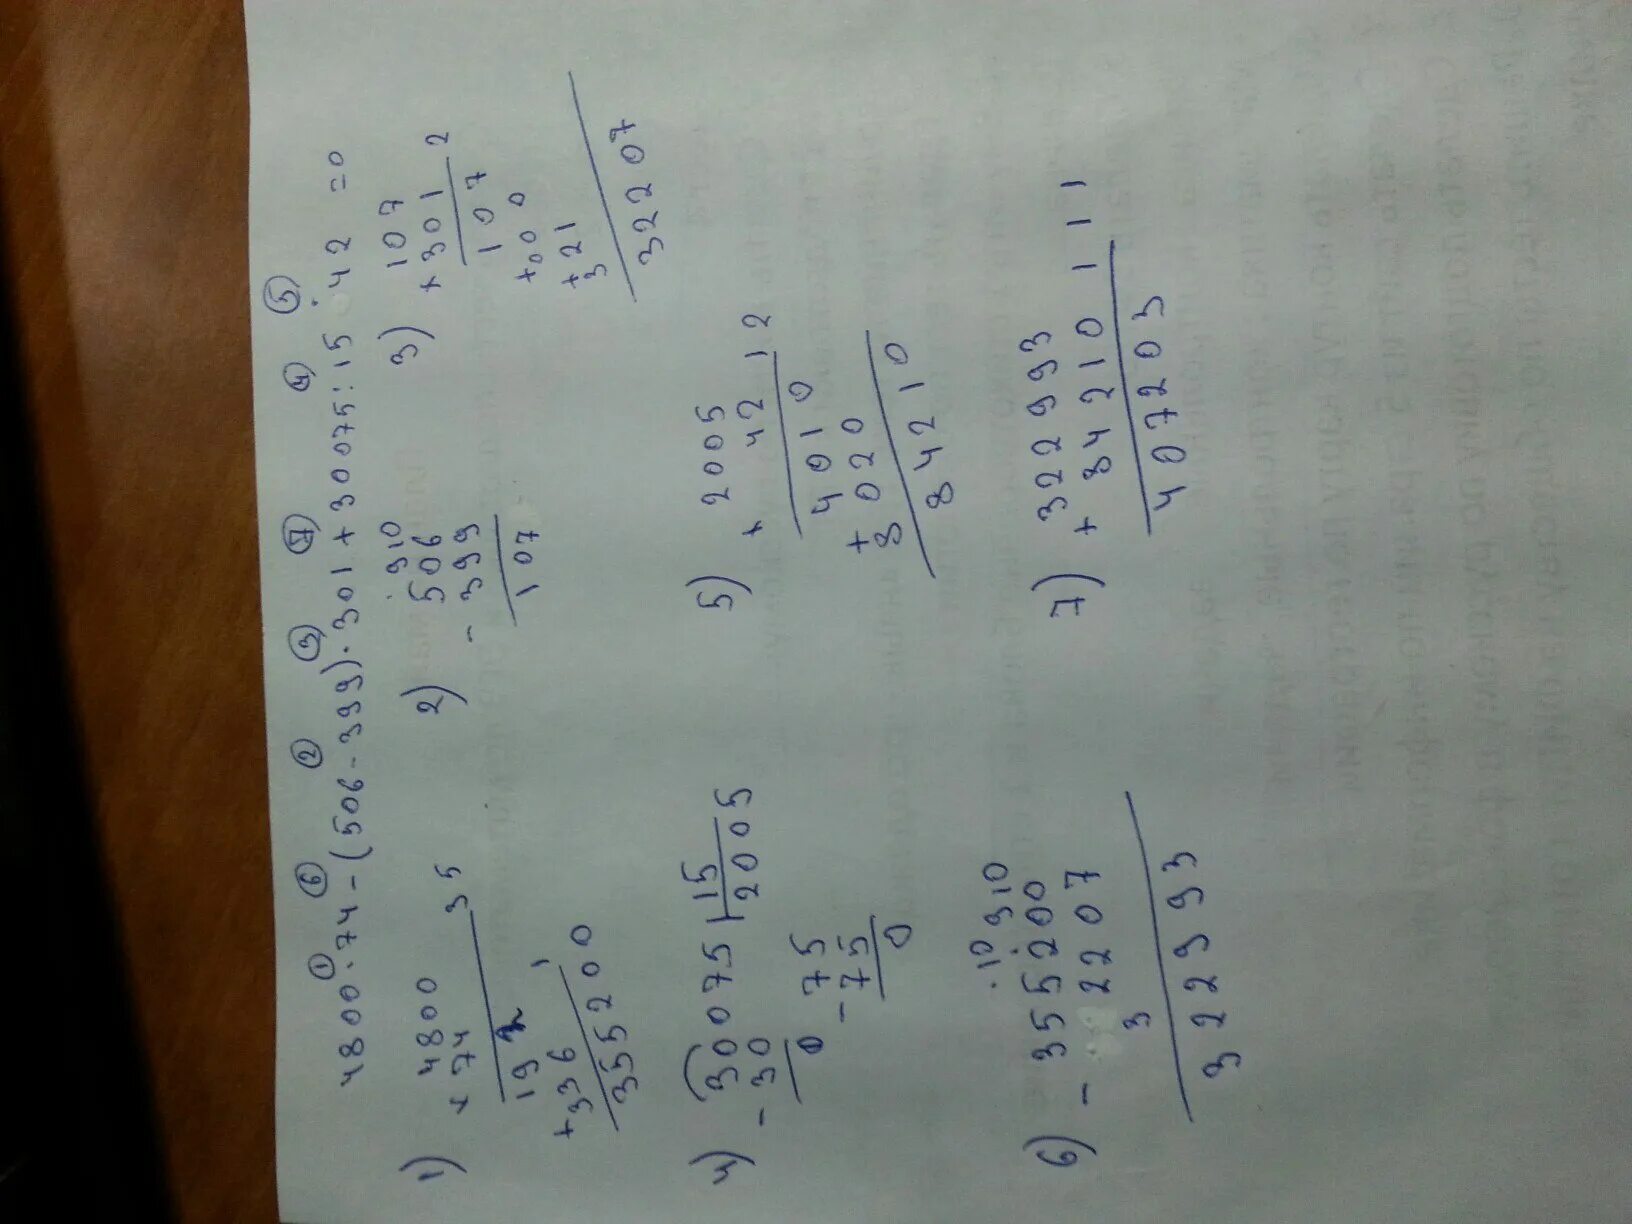 ① ⑥ ② ③ ⑦ ④ ⑤
4800·74-(506-399)·301+30075:15·42=
1) 4800
×74
35
192
+336
1
355200
2) 910
506
-399
107
3) 107
×301
2
107
+000
+321
32207
4) 30075|15
-30
2005
0
-75
75
0
5) 2005
×42
12
4010
+8020
84210
6) 10 910
-355200
32207
322993
7) 322993
+84210
111
407203